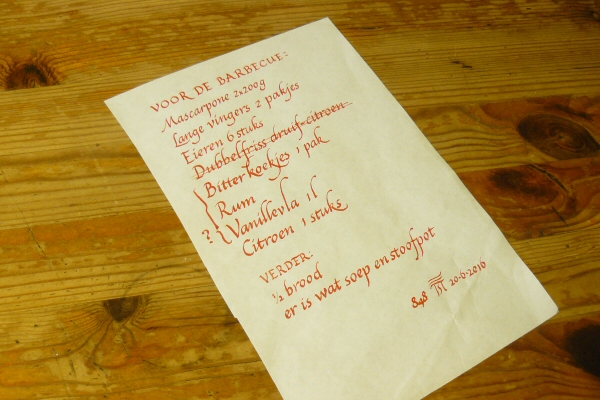 VOOR DE BARBECUE:
Mascarpone 2x200g
Lange vingers 2 pakjes
Eieren 6 stuks
Dubbelfriss druif-citroen
Bitterkoekjes 1 pak
Rum
? Vanillevla 1l
Citroen 1 stuks
VERDER:
½ brood
er is wat soep en stoofpot
20-6-2016